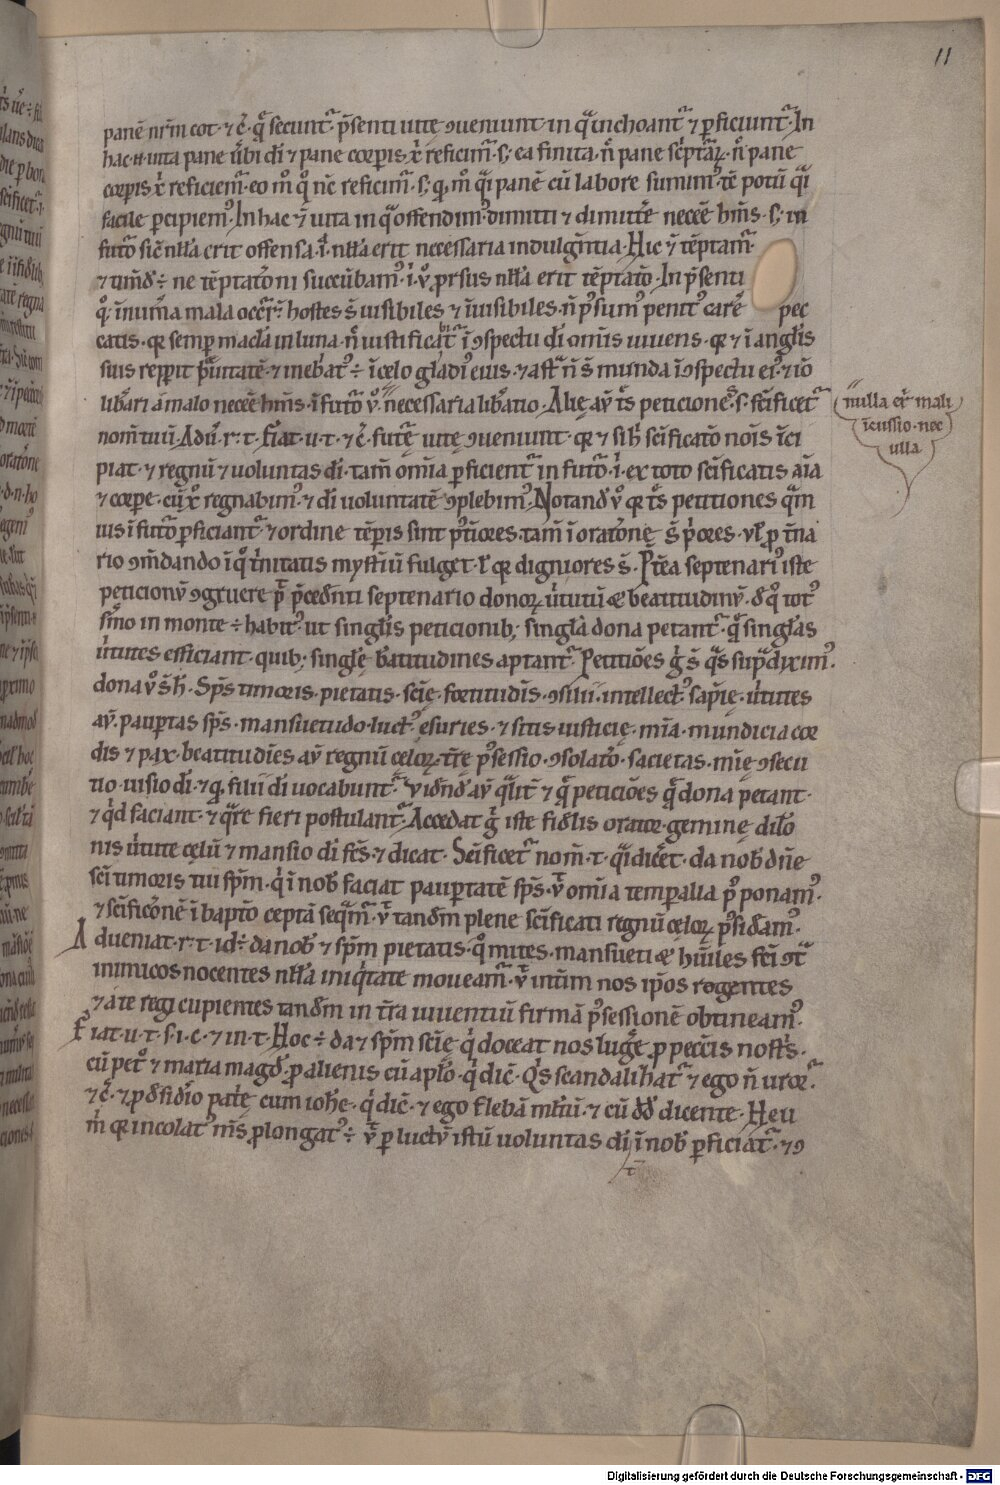 11
panē nr̄m cot· ⁊ c̄· q̄ secunt᷑ p̄senti uitę ꝯueniunt· in qͣ inchoant᷑ ⁊ ꝑficiunt᷑· In
hac· n̄ uita pane ūbi dī ⁊ pane corꝑis xp̄ı reficim᷑· s; ea finita· n̄ pane sc̄ptar̄ꝝ n̄ pane
corꝑis xp̄ı reficiem᷑· eo m̊ q̊ nc̄ reficim᷑· s; q̨ m̊ qͣi panē cū labore sumim᷒· tē potū qͣi
facile ꝑcipiem᷒· In hac ū uita in qͣ offendim᷒· dimitti ⁊ dimitt̄e necē e hm̄s· s; in
futō sic̄ nłła erit offensa· ı̄· nłła erit necessaria indulgn̄tia· Hic ū tēptam᷑·
⁊ tim̄d ÷ ne tēptatōni succūbam᷒· ı̄· ů ꝓrsus nłła erit tēptatō· In p̄senti
q; īnum̄a mala occ̄r̄· hostes s̄ uisibiles ⁊ īuisibiles· n̄ p᷒sum᷒ penit᷒ carē pec
catis· qꝛ semꝑ macła in luna· n̄ iustificabit᷑ ī ꝯspectu dī om̄is uiuens· qꝛ ⁊ ī angłis
suis repꝑit pͣuitatē· ⁊ inebat᷒ ÷ ī celo gladi᷒ eius· ⁊ astͣ n̄ s̄ munda ī ꝯspectu ei᷒· ⁊ iō
lib̄ari á malo necē e hm̄s· ī futō ů· necessaria lib̄atio· Alię aū tr̄s peticiones· s· sc̄ificet᷑
nulla er̄ mali
īcussio· nec
ulla
nom̄ tuū· Adū· r· t· Fiat· u· t· ⁊ c̄· futꝛę uitę ꝯueniunt· qꝛ ⁊ si h̄ sc̄ificatō nōis īci
piat· ⁊ regnū ⁊ uoluntas dī· tam̄ om̄ia ꝑficient᷑ in futō· ı̄· ex toto sc̄ificatis aīa
⁊ corꝑe· cū xp̄o regnabim᷒· ⁊ dī uoluntatē ꝯplebim᷒· Notand ů q; tr̄s petitiones qͣm
uis ī futō ꝑficiant᷑ ⁊ ordine tēꝑis sint p᷒tiores· tam̄ ī oratōne s̄ p̓ores· ułꝓ t̄na
rio ꝯm̄dando ī q̊ t̓nitatis mystīū fulget· ł qꝛ digniores s̄· Prēa septenari᷒ iste
peticionū ꝯgruere p̄t p̄cednti septenario donoꝝ· u̓tutū & beatitudinū· d̊ q̊ tot᷒
s̄mo in monte ÷ habit᷒· ut singłis peticionib; singła dona petant᷑· q̄ singłas
u̓tutes efficiant· quib; singłę b̄atitudines aptant᷑· Petitiōes g̊ s̄ qͣs supͣdixim᷒·
dona ů s̄ h̄· Sp̄s timoris· pietatis· sc̄ię· fortitudīs· ꝯsilii· intellect᷒· sap̄ię· u̓tutes
aū· pauꝑtas sp̄s· mansuetudo· luct᷒ esuries· ⁊ sitis iusticię· mīa· mundicia cor
dis ⁊ pax· beatitudīes aū regnū celoꝝ· tr̄ę p᷒sessio· ꝯsolatō· sacietas· mīę ꝯsecu
tio· uisio dī· ⁊ q̨ filii dī uocabunt᷑· Vidn̄d aū· qͣlit̄ ⁊ q̄ peticiōes q̄ dona petant·
⁊ q̓d faciant· ⁊ qͣre fieri postulant᷑· Accedat g̊ iste fidlis orator· geminę diło
nis u̓tute celū ⁊ mansio dī fc̄s· ⁊ dicat· Sc̄ificet᷑ nom̄· t· qͣi dic̄et· da nob̄ dn̄e
sc̄i timoris tui sp̄m· q̓ ī nob̄ faciat pauꝑtatē sp̄s· ut̄ om̄ia temꝑalia p᷒ponam᷒·
⁊ sc̄ificōnē ī bapt̄o ceptā seqͣm᷑· ut̄ tandm̄ plene sc̄ificati regnū celoꝝ p᷒sidam᷒·
Adueniat· r· t· id· da nob̄ ⁊ sp̄m pietatis· q̊ mites· mansueti & hūiles fc̄i ꝯtͣ
inimicos nocentes nłła iniq̓tate moueam᷑· ut̄ intīm nos ip̄os regentes
⁊ á te regi cupientes tandm̄ in tr̄a uiuentiū firmā p᷒sessionē obtineam᷒·
Fiat· u· t· s· i· c· ⁊ in· t· Hoc ÷ da ⁊ sp̄m sc̄ię q̓ doceat nos lugē ꝓ pecc̄is nost̓s·
cū petō ⁊ maria magd̄· ꝓ alienis cū apło· q̓ dic̄· Q̓s scandalihat᷑ ⁊ ego n̄ uror᷑·
⁊ c̄· ⁊ ꝓ dsidīo patͥę cum ioh̄e· q̓ dic̄· ⁊ ego flebā młtū· ⁊ cū dd̄ dicente· Heu
m̓ qꝛ incolat᷒ m̄s ꝓlongat᷒ ÷ ut̄ ꝑ luctū istū uoluntas dī ī nob̄ ꝑficiat᷑· ⁊ ꝯ
Digitalisierung gefördert durch die Deutsche Forschungsgemeinschaft - DFG